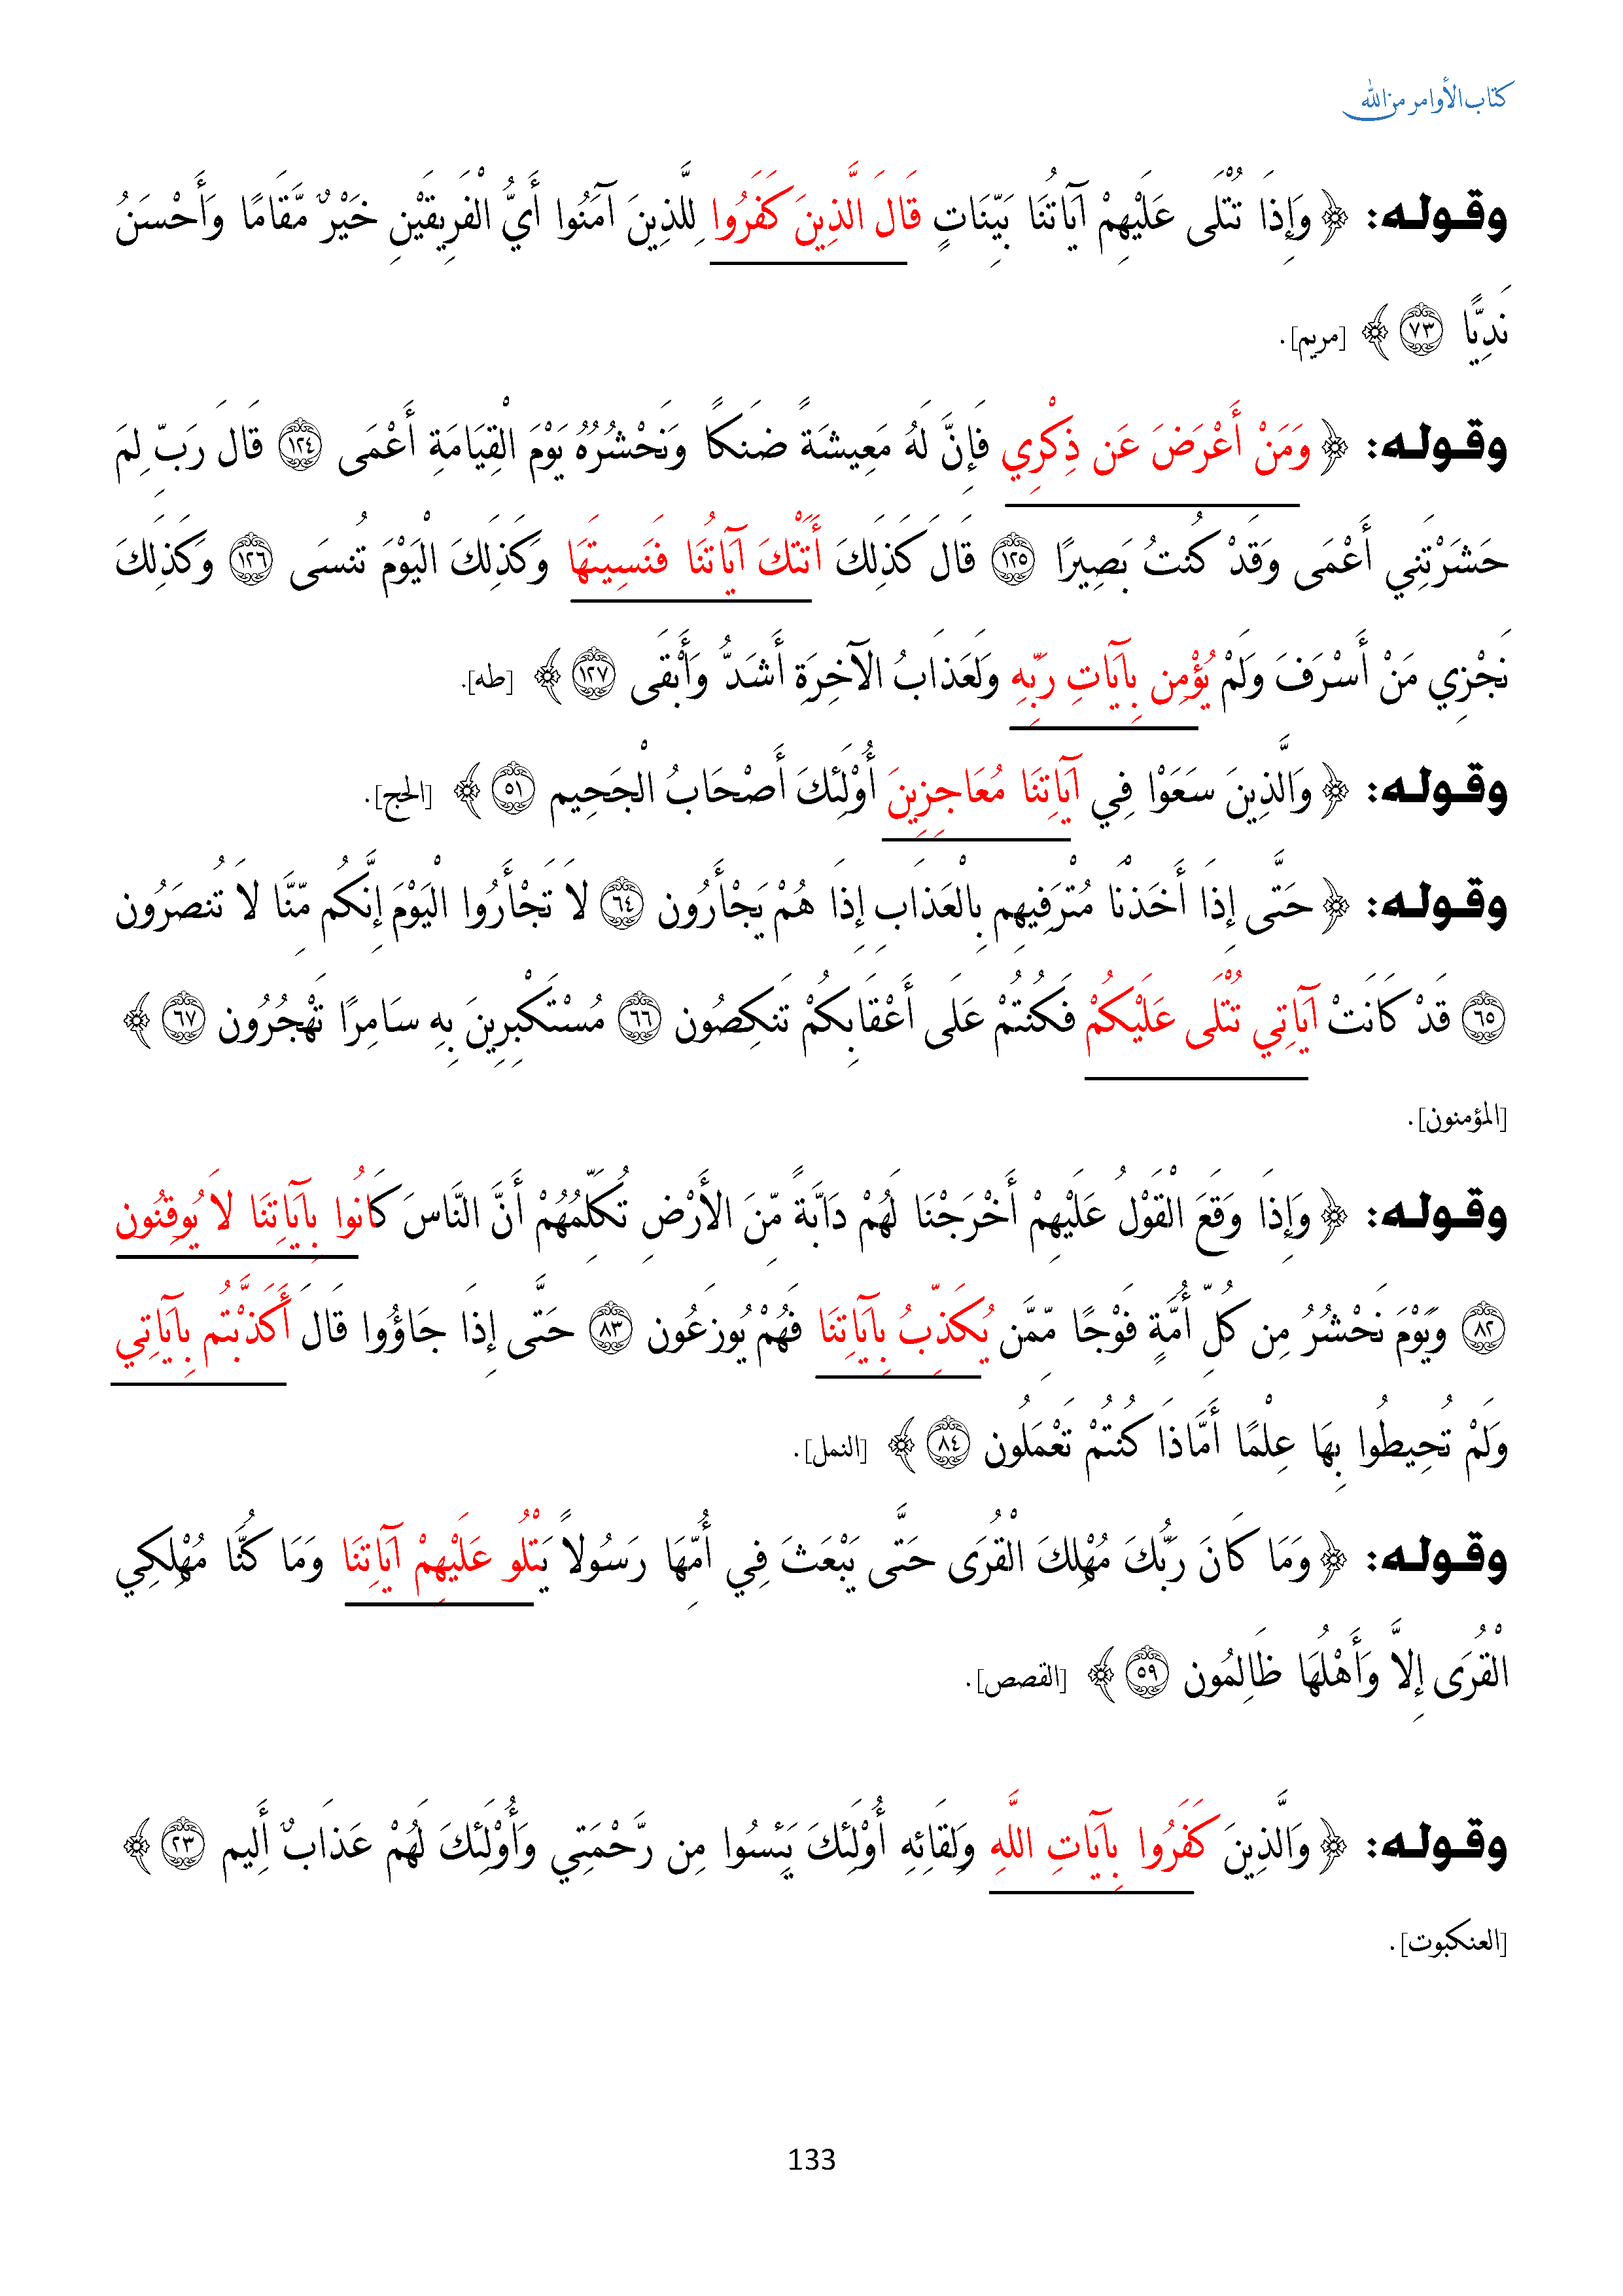 كتاب الأوامر من الله
وقوله: ﴿ وَإِذَا تُتْلَى عَلَيْهِمْ آيَاتُنَا بَيِّنَاتٍ قَالَ الَّذِينَ كَفَرُوا لِلَّذِينَ آمَنُوا أَيُّ الْفَرِيقَيْنِ خَيْرٌ مَّقَامًا وَأَحْسَنُ
نَدِيًّا ٧٣ ﴾ [مريم].
وقوله: ﴿ وَمَنْ أَعْرَضَ عَن ذِكْرِي فَإِنَّ لَهُ مَعِيشَةً ضَنكًا وَنَحْشُرُهُ يَوْمَ الْقِيَامَةِ أَعْمَى ١٢٤ قَالَ رَبِّ لِمَ
حَشَرْتَنِي أَعْمَى وَقَدْ كُنتُ بَصِيرًا ١٢٥ قَالَ كَذَلِكَ أَتَتْكَ آيَاتُنَا فَنَسِيتَهَا وَكَذَلِكَ الْيَوْمَ تُنسَى ١٢٦ وَكَذَلِكَ
نَجْزِي مَنْ أَسْرَفَ وَلَمْ يُؤْمِن بِآيَاتِ رَبِّهِ وَلَعَذَابُ الآخِرَةِ أَشَدُّ وَأَبْقَى ١٢٧ ﴾ [طه].
وقوله: ﴿ وَالَّذِينَ سَعَوْا فِي آيَاتِنَا مُعَاجِزِينَ أُوْلَئِكَ أَصْحَابُ الْجَحِيم ٥١ ﴾ [الحج].
وقوله: ﴿ حَتَّى إِذَا أَخَذْنَا مُتْرَفِيهِم بِالْعَذَابِ إِذَا هُمْ يَجْأَرُون ٦٤ لاَ تَجْأَرُوا الْيَوْمَ إِنَّكُم مِّنَّا لاَ تُنصَرُون
٦٥ قَدْ كَانَتْ آيَاتِي تُتْلَى عَلَيْكُمْ فَكُنتُمْ عَلَى أَعْقَابِكُمْ تَنكِصُون ٦٦ مُسْتَكْبِرِينَ بِهِ سَامِرًا تَهْجُرُون ٦٧ ﴾
[المؤمنون].
وقوله: ﴿ وَإِذَا وَقَعَ الْقَوْلُ عَلَيْهِمْ أَخْرَجْنَا لَهُمْ دَابَّةً مِّنَ الأَرْضِ تُكَلِّمُهُمْ أَنَّ النَّاسَ كَانُوا بِآيَاتِنَا لاَ يُوقِنُون
٨٢ وَيَوْمَ نَحْشُرُ مِن كُلِّ أُمَّةٍ فَوْجًا مِّمَّن يُكَذِّبُ بِآيَاتِنَا فَهُمْ يُوزَعُون ٨٣ حَتَّى إِذَا جَاؤُوا قَالَ أَكَذَّبْتُم بِآيَاتِي
وَلَمْ تُحِيطُوا بِهَا عِلْمًا أَمَّاذَا كُنتُمْ تَعْمَلُون ٨٤ ﴾ [النمل].
وقوله: ﴿ وَمَا كَانَ رَبُّكَ مُهْلِكَ الْقُرَى حَتَّى يَبْعَثَ فِي أُمِّهَا رَسُولاً يَتْلُو عَلَيْهِمْ آيَاتِنَا وَمَا كُنَّا مُهْلِكِي
الْقُرَى إِلاَّ وَأَهْلُهَا ظَالِمُون ٥٩ ﴾ [القصص].
وقوله: ﴿ وَالَّذِينَ كَفَرُوا بِآيَاتِ اللَّهِ وَلِقَائِهِ أُوْلَئِكَ يَئِسُوا مِن رَّحْمَتِي وَأُوْلَئِكَ لَهُمْ عَذَابٌ أَلِيم ٢٣ ﴾
[العنكبوت].
133